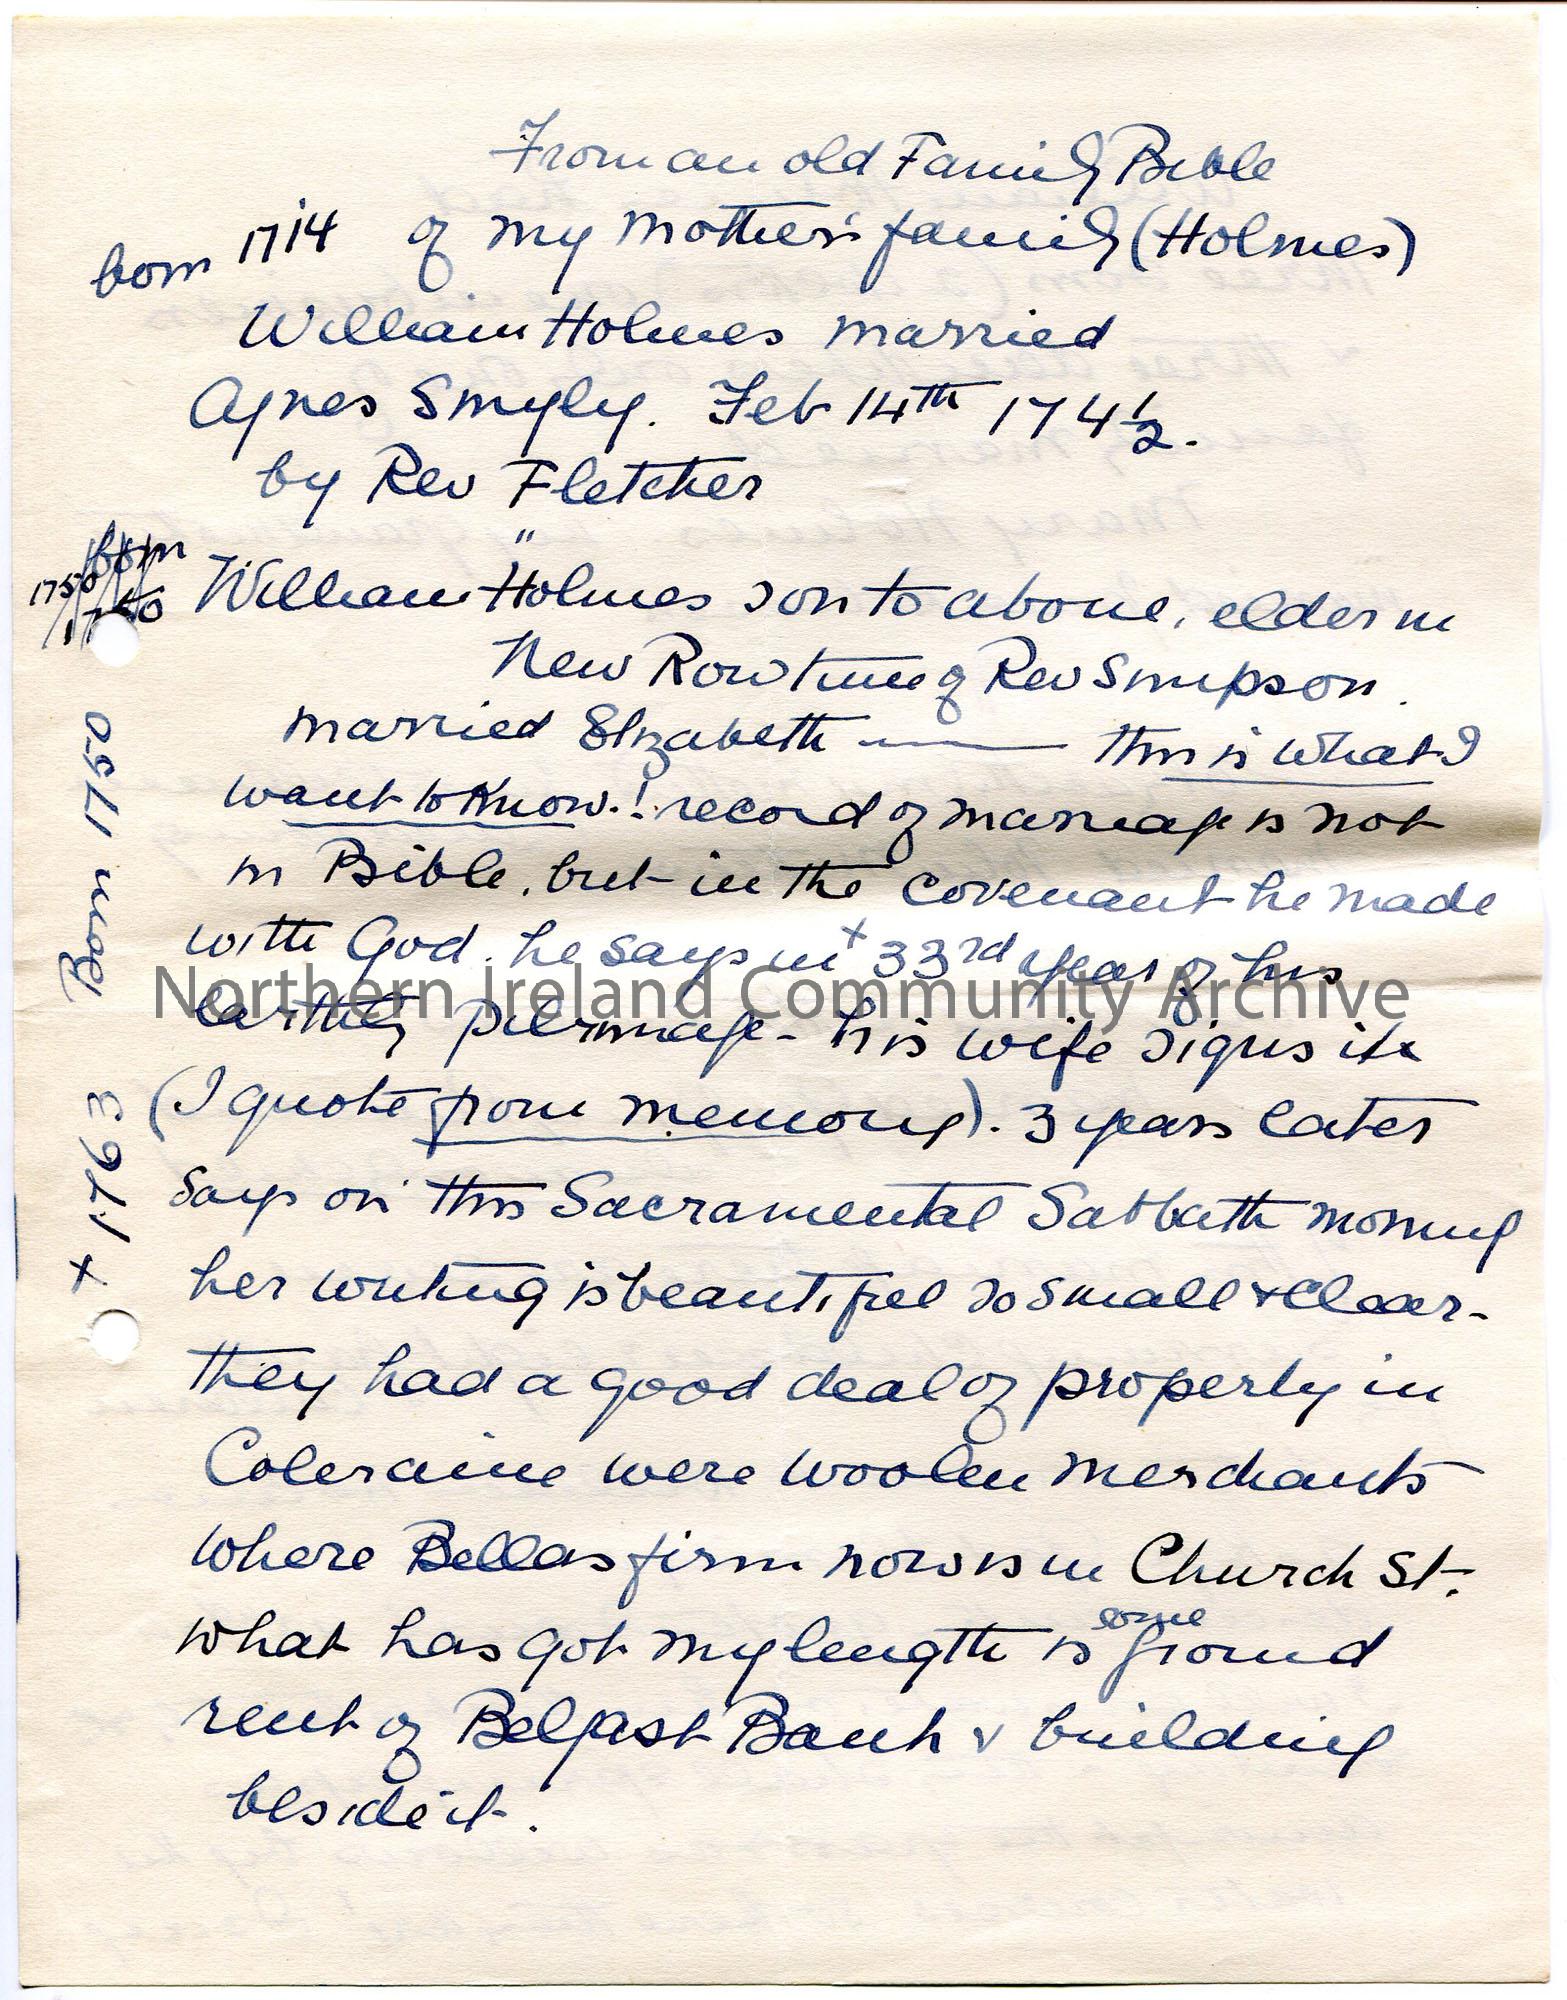 From an old Family Bible
born 1714 of my mother's family (Holmes)
William Holmes married
Agnes Smyly. Feb 14th 174 1/2.
by Rev Fletcher
"
born
1750
1750
William Holmes son to above, elder in
New Row time of Rev Simpson.
married Elizabeth —— this is what I
want to know.! record of marriage is not
in Bible, but in the covenant he made
with God. he says in + 33rd year of his
earthly pilgrimage - his wife signs it
(I quote from memory). 3 years later
says on this Sacramental Sabbath morning
her writing is beautiful so small & clear-
they had a good deal of property in
Coleraine were woolen merchants
where Bellas firm now is in Church St.
what has got my length is some ground
rent of Belfast Bank & building
beside it.
Born 1750
+ 1763
Northern Ireland Community Archive